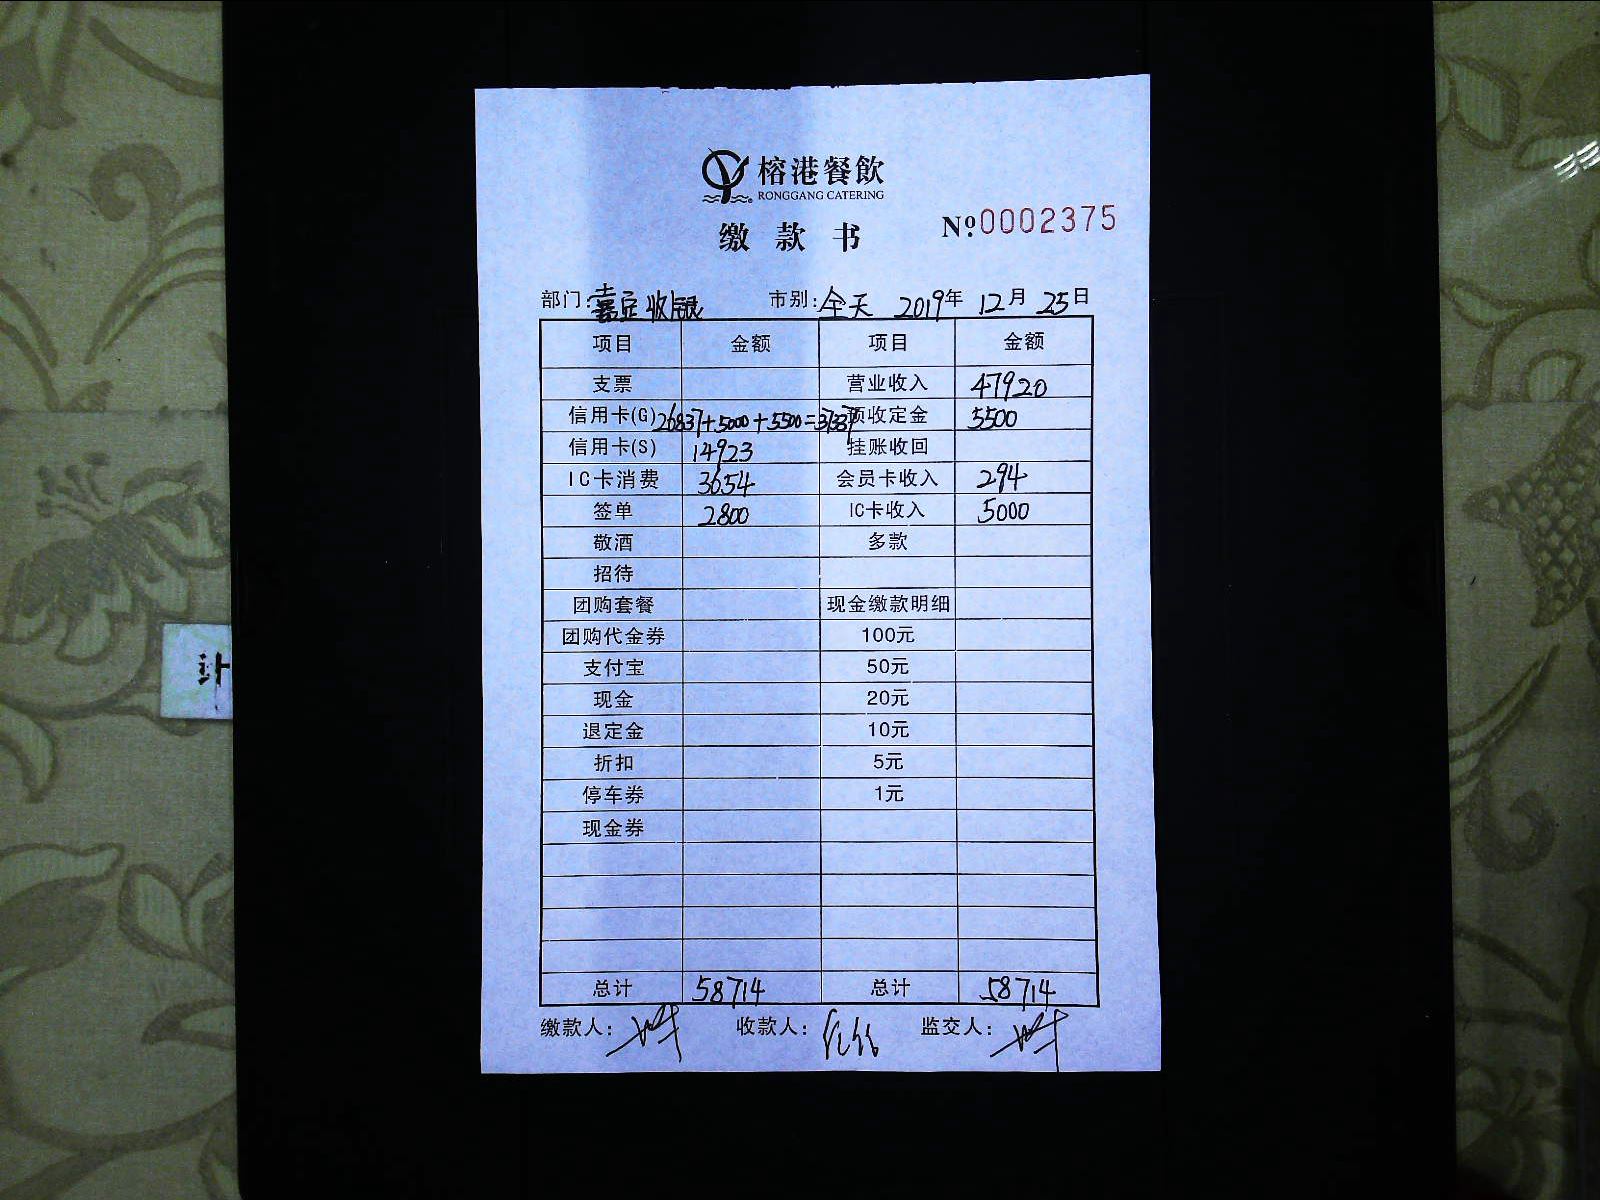 榕港餐飲
RONGGANG CATERING
缴款书 Nº0002375
部门:嘉定收银 市别:全天 2019年12月25日
项目 金额 项目 金额
支票 营业收入 47920
信用卡(G) 26837+5000+5500=37337 预收定金 5500
信用卡(S) 14923 挂账收回
IC卡消费 3654 会员卡收入 294
签单 2800 IC卡收入 5000
敬酒 多款
招待
团购套餐 现金缴款明细
团购代金券 100元
支付宝 50元
现金 20元
退定金 10元
折扣 5元
停车券 1元
现金券
总计 58714 总计 58714
缴款人: 收款人: 监交人:
计